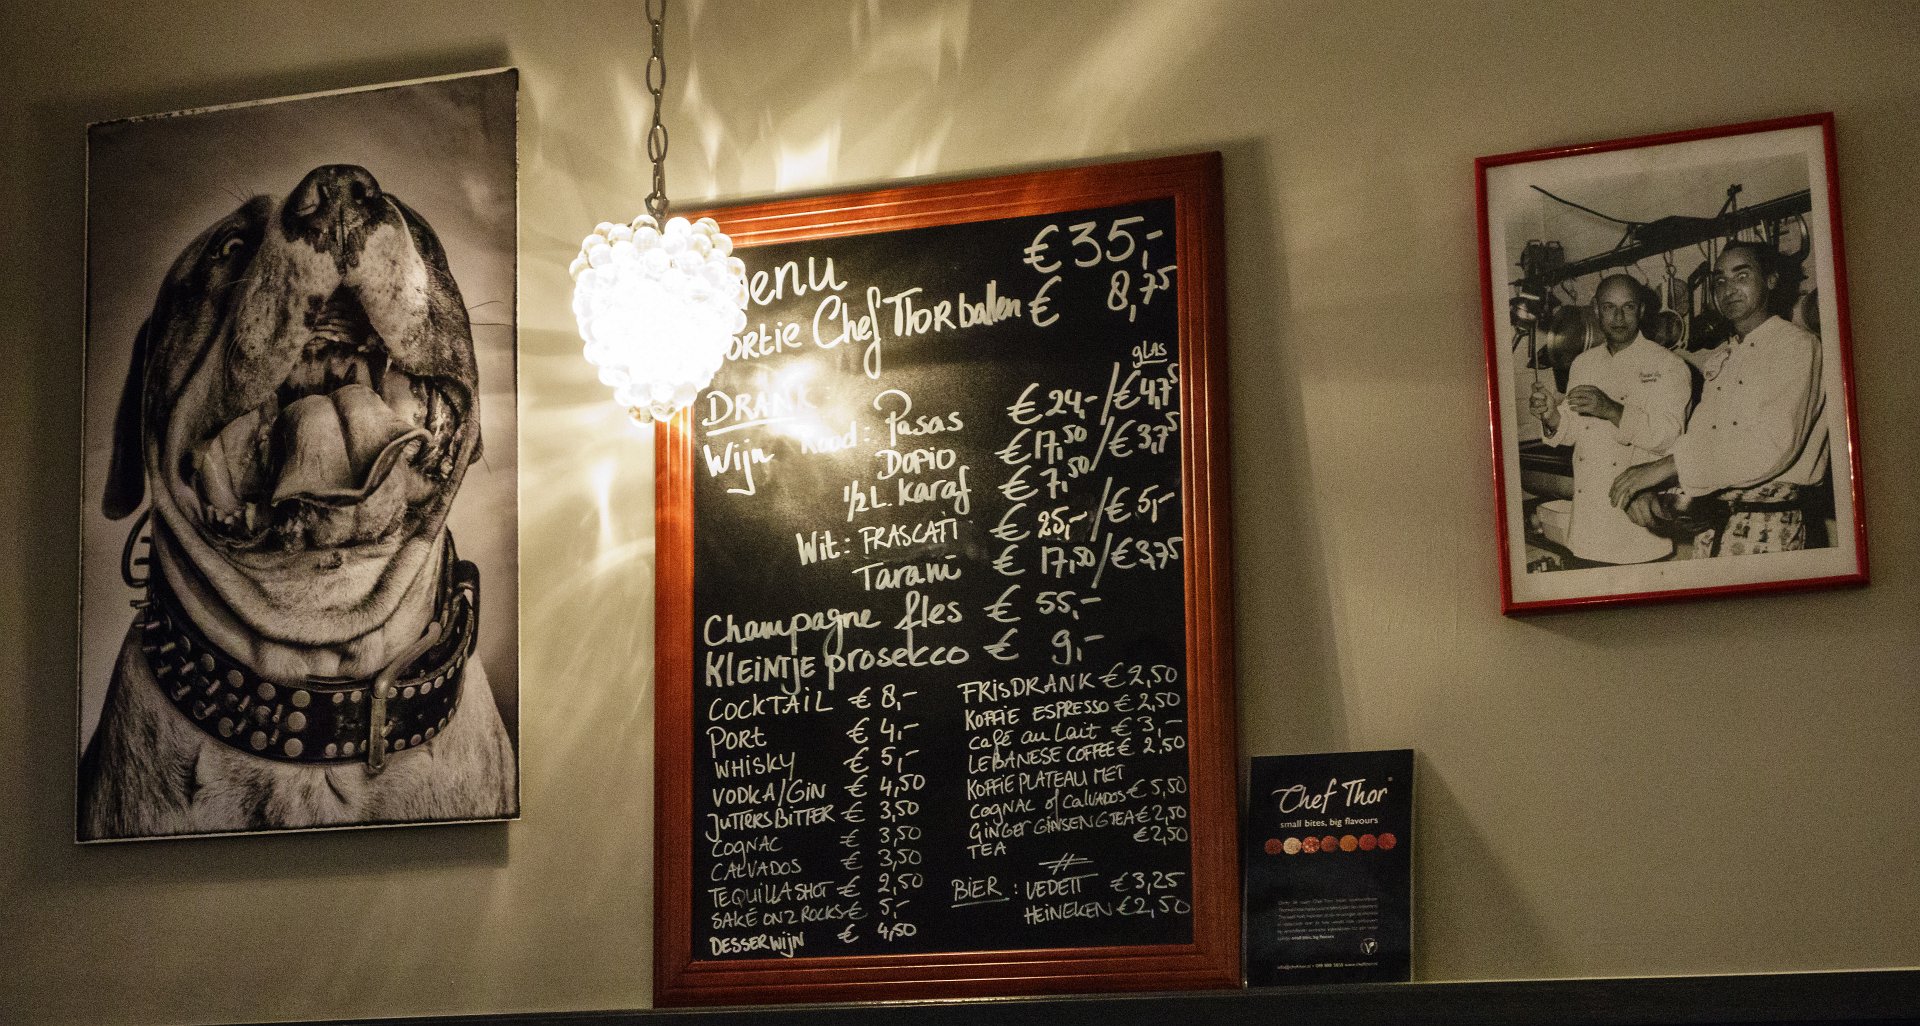 enu €35,-
ortie Chef Thor ballen € 8,75
glas
DRANK
Wijn Rood: Pasas € 24,-/€4,75
DOPIO € 17,50/€3,75
1/2 L. Karaf € 7,50
Wit: FRASCATI € 25,-/€5,-
Tarani € 17,50/€3,75
Champagne fles € 55,-
KLEINTJE prosecco € 9,-
COCKTAIL € 8,-
PORT € 4,-
WHISKY € 5,-
VODKA/GIN € 4,50
JUTTERSBITTER € 3,50
COGNAC € 3,50
CALVADOS € 3,50
TEQUILLASHOT € 2,50
SAKÉ ON 2 ROCKS € 5,-
DESSERWIJN € 4,50
FRISDRANK € 2,50
KOFFIE ESPRESSO € 2,50
café au Lait € 3,-
LEBANESE COFFEE € 2,50
KOFFIE PLATEAU MET
COGNAC of CALVADOS € 5,50
GINGER GINSENG TEA € 2,50
TEA € 2,50
BIER: VEDETT € 3,25
HEINEKEN € 2,50
Chef Thor®
small bites, big flavours